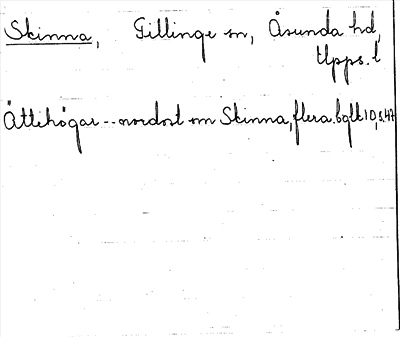 Skinna, Gillinge sn, Åsunda hd,
Upps. l
Ättehögar -- nordost om Skinna, flera. bglt 10, s. 47